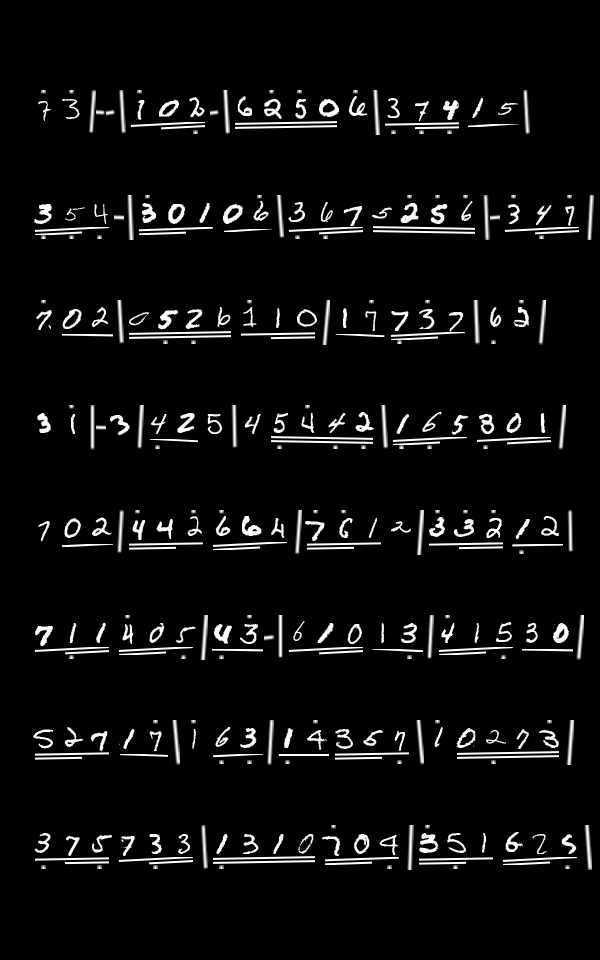 7 3 | - - | 1 0 2 - | 6 2 5 0 6 | 3 7 4 1 5 |
3 5 4 - | 3 0 1 0 6 | 3 6 7 5 2 5 6 | - 3 4 7 |
7 0 2 | 0 5 2 6 1 1 0 | 1 7 7 3 7 | 6 2 |
3 1 | - 3 | 4 2 5 | 4 5 4 4 2 | 1 6 5 8 0 1 |
7 0 2 | 4 4 2 6 6 4 | 7 6 1 2 | 3 3 2 1 2 |
7 1 1 4 0 5 | 4 3 - | 6 1 0 1 3 | 4 1 5 3 0 |
5 2 7 1 7 | 1 6 3 | 1 4 3 5 7 | 1 0 2 7 3 |
3 7 5 7 3 3 | 1 3 1 0 7 0 4 | 3 5 1 6 7 5 |